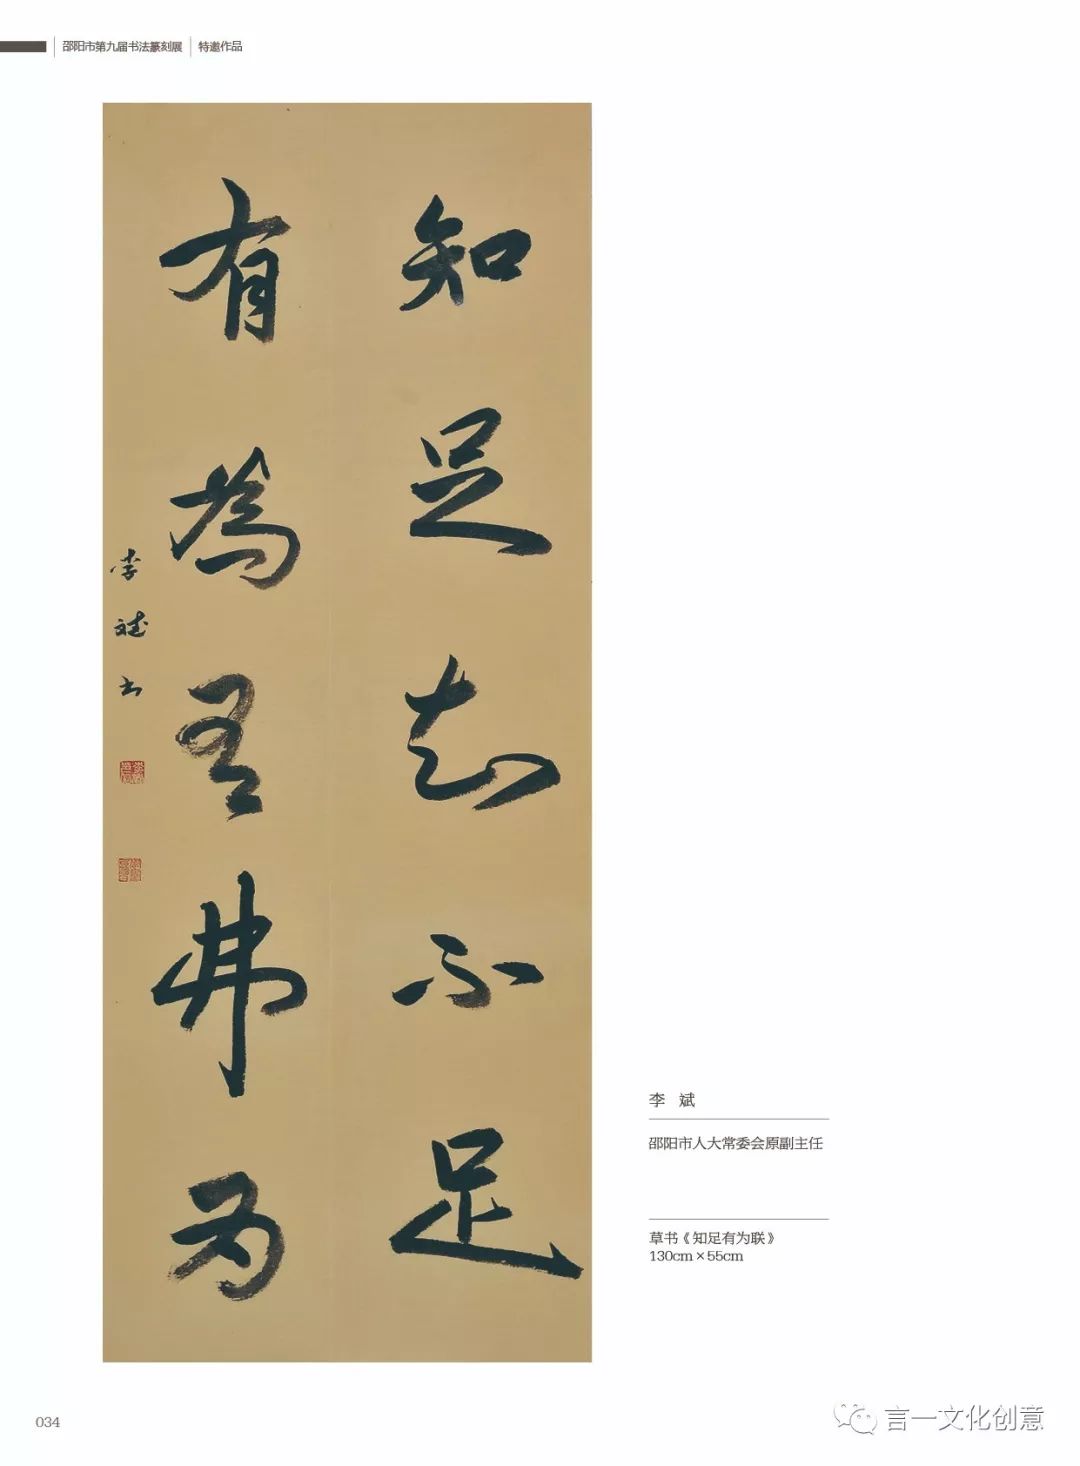 邵阳市第九届书法篆刻展 特邀作品
知足知不足
有為有弗为
李斌书
李 斌
邵阳市人大常委会原副主任
草书《知足有为联》
130cm×55cm
034
言一文化创意